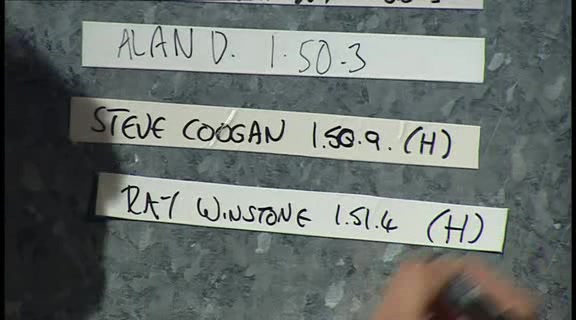 ALAN D. 1.50.3
STEVE COOGAN 1.50.9. (H)
RAY WINSTONE 1.51.4 (H)